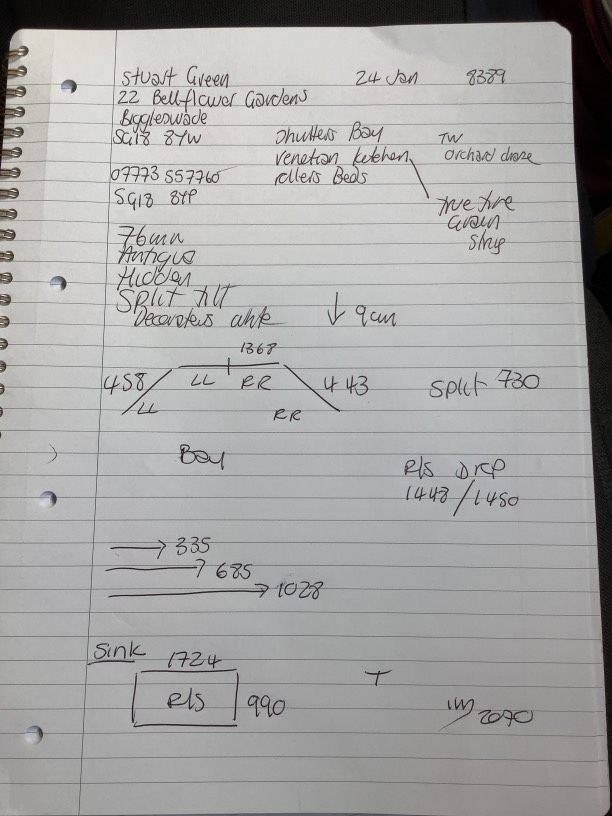 Stuart Green 24 Jan 8389
22 Bellflower Gardens
Biggleswade
SG18 8YW
shutters Bay
venetian kitchen
rollers Beds
TW
orchard
07773 557760
SG18 8YP
True
Grain
76mm
Antique
Hidden
Split tilt
Decorators white
↓ 9cm
1368
458 LL RR 443
LL RR
Split 730
Bay
R/s Drop
1448/1450
→ 335
→ 685
→ 1028
Sink 1724
R/s 990
T
2070